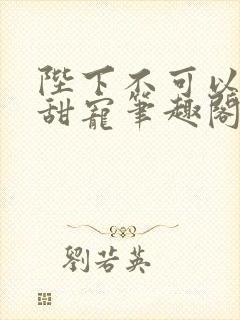 陛下不可以
甜寵筆趣閣
劉若英